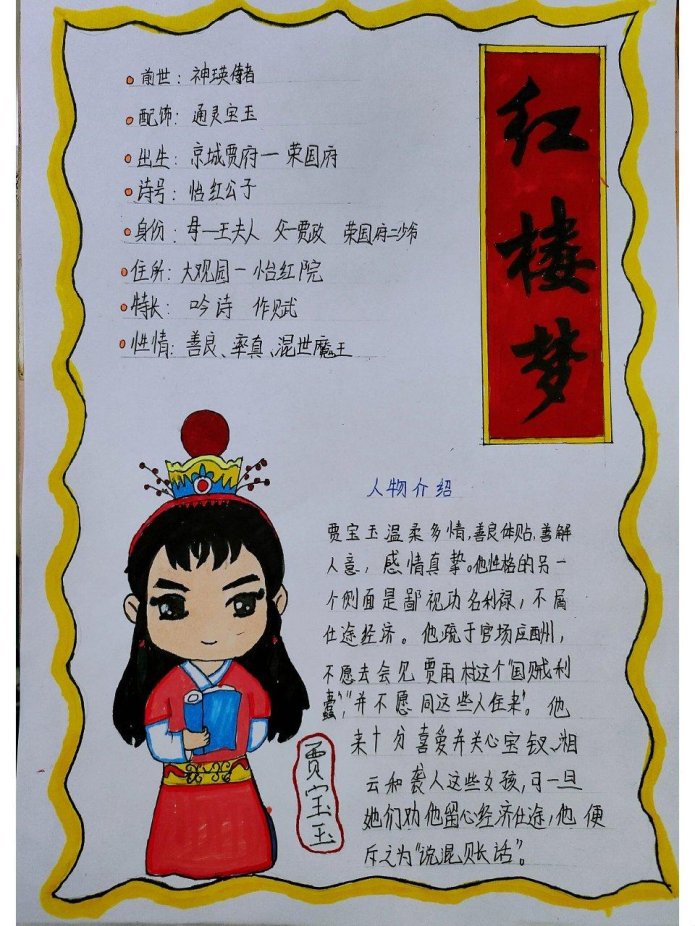 前世：神瑛侍者
配饰：通灵宝玉
出生：京城贾府一荣国府
诗号：怡红公子
身份：母—王夫人 父—贾政 荣国府二少爷
住所：大观园－怡红院
特长： 吟诗 作赋
性情：善良、率真、混世魔王
红楼梦
人物介绍
贾宝玉温柔多情，善良体贴，善解
人意，感情真挚。他性格的另一
个侧面是鄙视功名利禄，不屑
仕途经济。他疏于官场应酬，
不愿去会见贾雨村这个“国贼利
蠹”，并不愿同这些人往来。他
来十分喜爱并关心宝钗、湘
云和袭人这些女孩，可一旦
她们劝他留心经济仕途，他便
斥之为“说混账话”。
贾宝玉